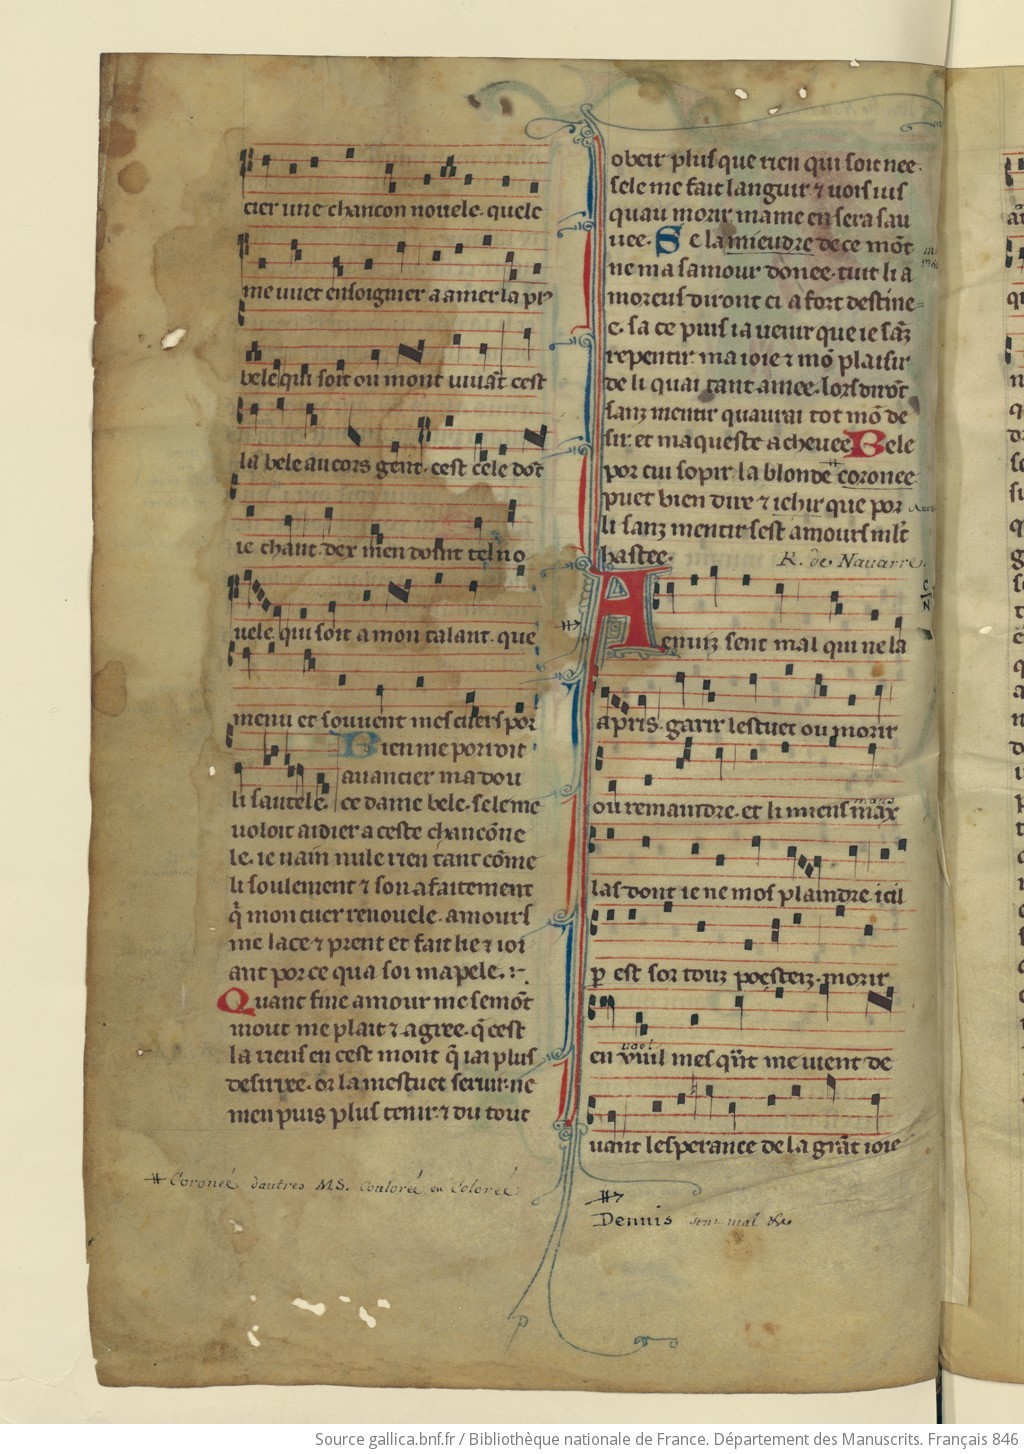 cier une chancon nouele. quele
me vuet ensoignier a amer la plꝰ
bele qui soit ou mont uiuāt cest
la bele au cors gent. cest cele dōt
ie chant. dex men doint tel no
uele. qui soit a mon talant. que
menu et souuent mes cuers por
li sautele.
Bien me porroit
auancier ma dou
ce dame bele. sele me
uoloit aidier a ceste chancōne
le. ie naim nule rien tant cōme
li soulement ⁊ son afaitement
q̄ mon cuer renouele. amours
me lace ⁊ prent et fait lie ⁊ ioi
ant por ce qua soi mapele.
Quant fine amour me semōt
mout me plait ⁊ agree. q̄ cest
la riens en cest mont q̄ iai plus
desirree. or la mestuet seruir. ne
men puis plus tenir. ⁊ du tout
obeir plus que rien qui soit nee.
sele me fait languir ⁊ uois ius
quau morir mame en sera sau
uee. Se la mieudre de ce mōt
ne ma samour donee. tuit li a
moreus diront ci a fort destine=
e. sa ce puis ia uenir que ie sāz
repentir ma ioie ⁊ mō plaisir
de li quai tant amee. lors dirōt
sanz mentir quaurai tot mō de
sir. et ma queste acheuee. Bele
por cui sopir. la blonde coronee
puet bien dire ⁊ ichir que por
li sanz mentir. sest amours mlt̄
hastee.
R. de Nauarre.
Aenuiz sent mal qui ne la
apris. garir lestuet ou morir
ou remaindre. et li miens max
las dont ie ne mos plaindre. icil
ꝑ est sor touz poesteiz. morir
en vuil mes qn̄t me uient de
uant lesperance de la grāt ioie
Coronée d'autres MS. Coulorée ou Colorée
Denuis sent mal &c
Source gallica.bnf.fr / Bibliothèque nationale de France. Département des Manuscrits. Français 846